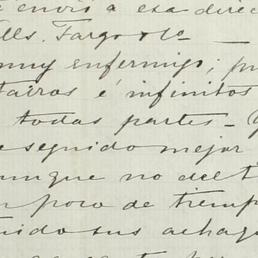 e envió a esa direc
lls. Fargo & Co —
muy enfermizo; pu
tarros é infinitos
todas partes — Y
seguido mejor
unque no del t
n poco de tiemp
nido sus achaq